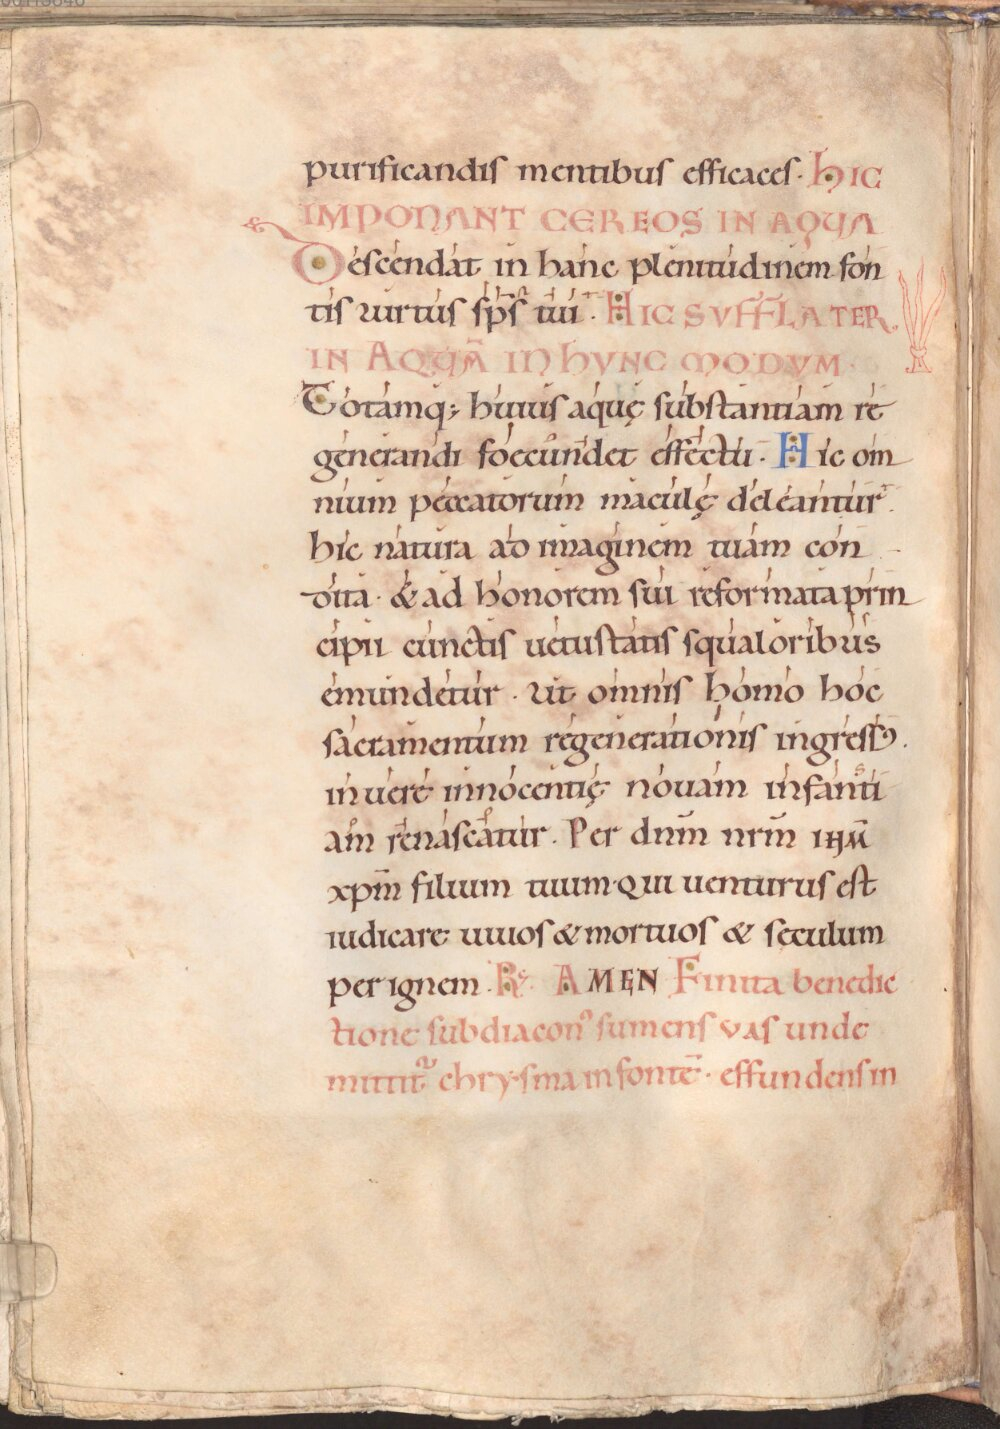 purificandis mentibus efficaces. HIC
IMPONANT CEREOS IN AQUA
Descendat in hanc plenitudinem fon
tis uirtus sp̄s tui. HIC SUFFLA TER
IN AQUĀ IN HUNC MODUM
Totamq; huius aquę substantiam re
generandi foecundet effectu. Hic om
nium peccatorum maculę deleantur.
hic natura ad imaginem tuam con
dita. & ad honorem sui reformata prin
cipii cunctis uetustatis squaloribus
emundetur. ut omnis homo hoc
sacramentum regenerationis ingressꝰ.
in uere innocentię nouam infanti
am renascatur. Per dn̄m nr̄m ihm̄
xpm̄ filium tuum qui uenturus est
iudicare uiuos & mortuos & seculum
per ignem. R̄. AMEN Finita benedic
tione subdiaconꝰ sumens vas unde
mittit᷑ chrysma in fontē. effundens in